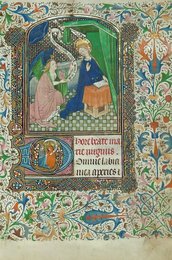 Hore beate ma
rie virginis
Domine labia
mea aperies